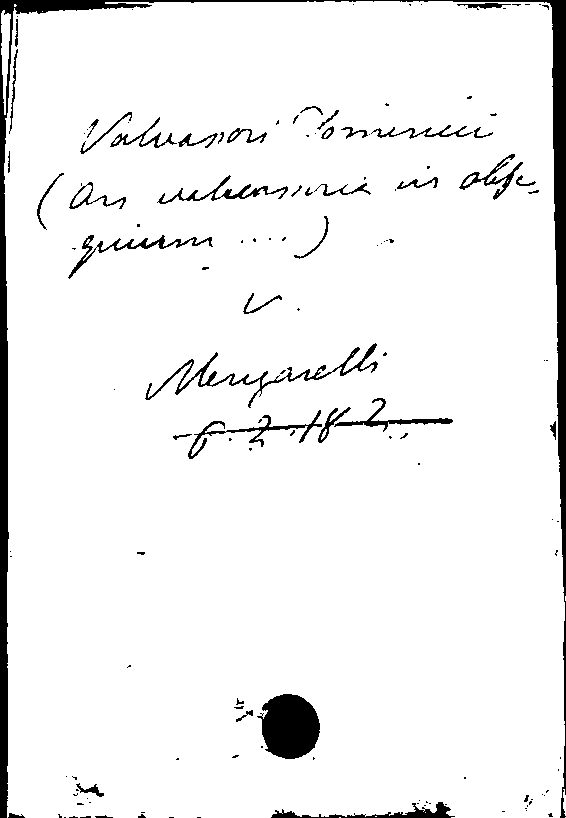 Valvasori Dominici
(Ars valvasoria in obse-
quium ....)
v.
Mengarelli
6. 2. 18 2.